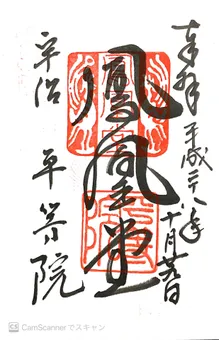 奉拝 平成二八年
十月 日
鳳凰堂
宇治 平等院
CS CamScanner でスキャン